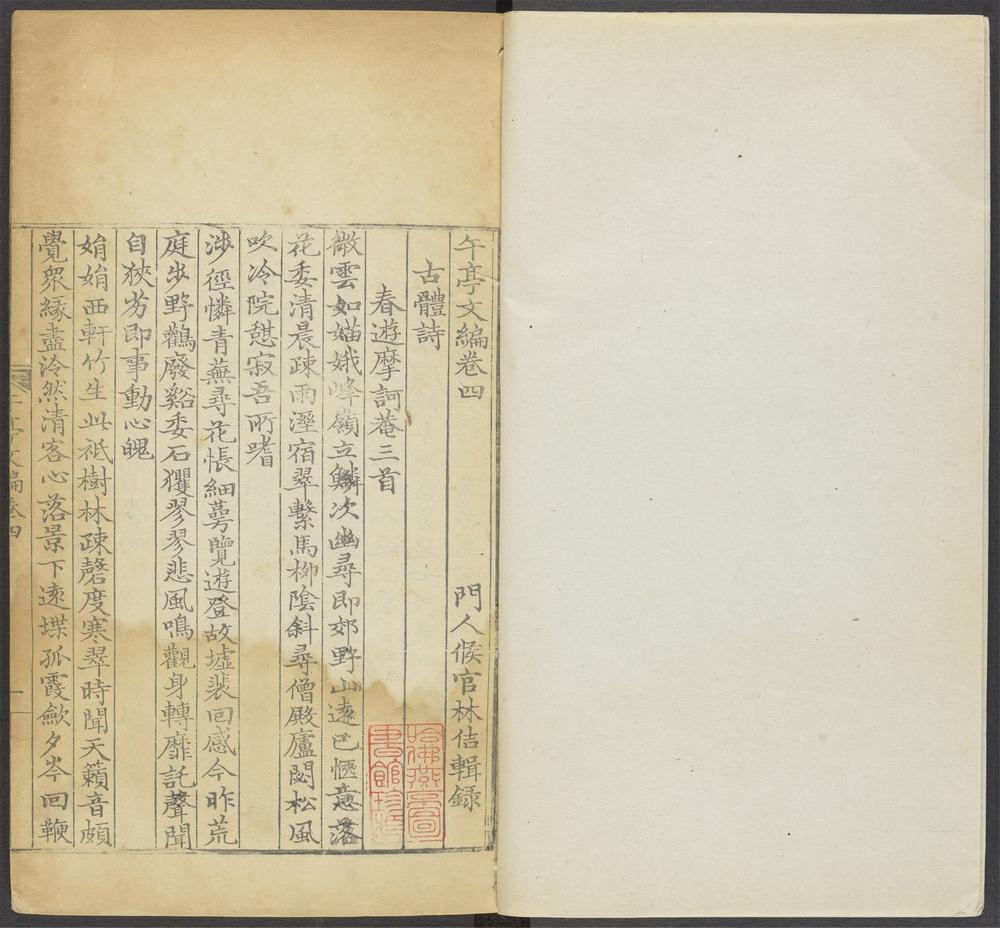 午亭文編卷四
門人候官林佶輯録
古體詩
春遊摩訶菴三首
微雲如媌娥峰嶺立鱗次幽尋即郊野山遠已愜意落
花委清晨疎雨溼宿翠繫馬柳陰斜尋僧殿廬閟松風
吹冷院憩寂吾所嗜
涉徑憐青蕪尋花悵細蕚覽遊登故墟裴回感今昨荒
庭步野鸛廢谿委石玃翏翏悲風鳴觀身轉靡託聲聞
自狹劣即事動心魄
娟娟西軒竹生此祇樹林疎磬度寒翠時聞天籟音頗
覺衆緣盡泠然清客心落景下遠堞孤霞歛夕岑回鞭
午亭文編卷四
一
哈佛燕京圖
書館珍藏